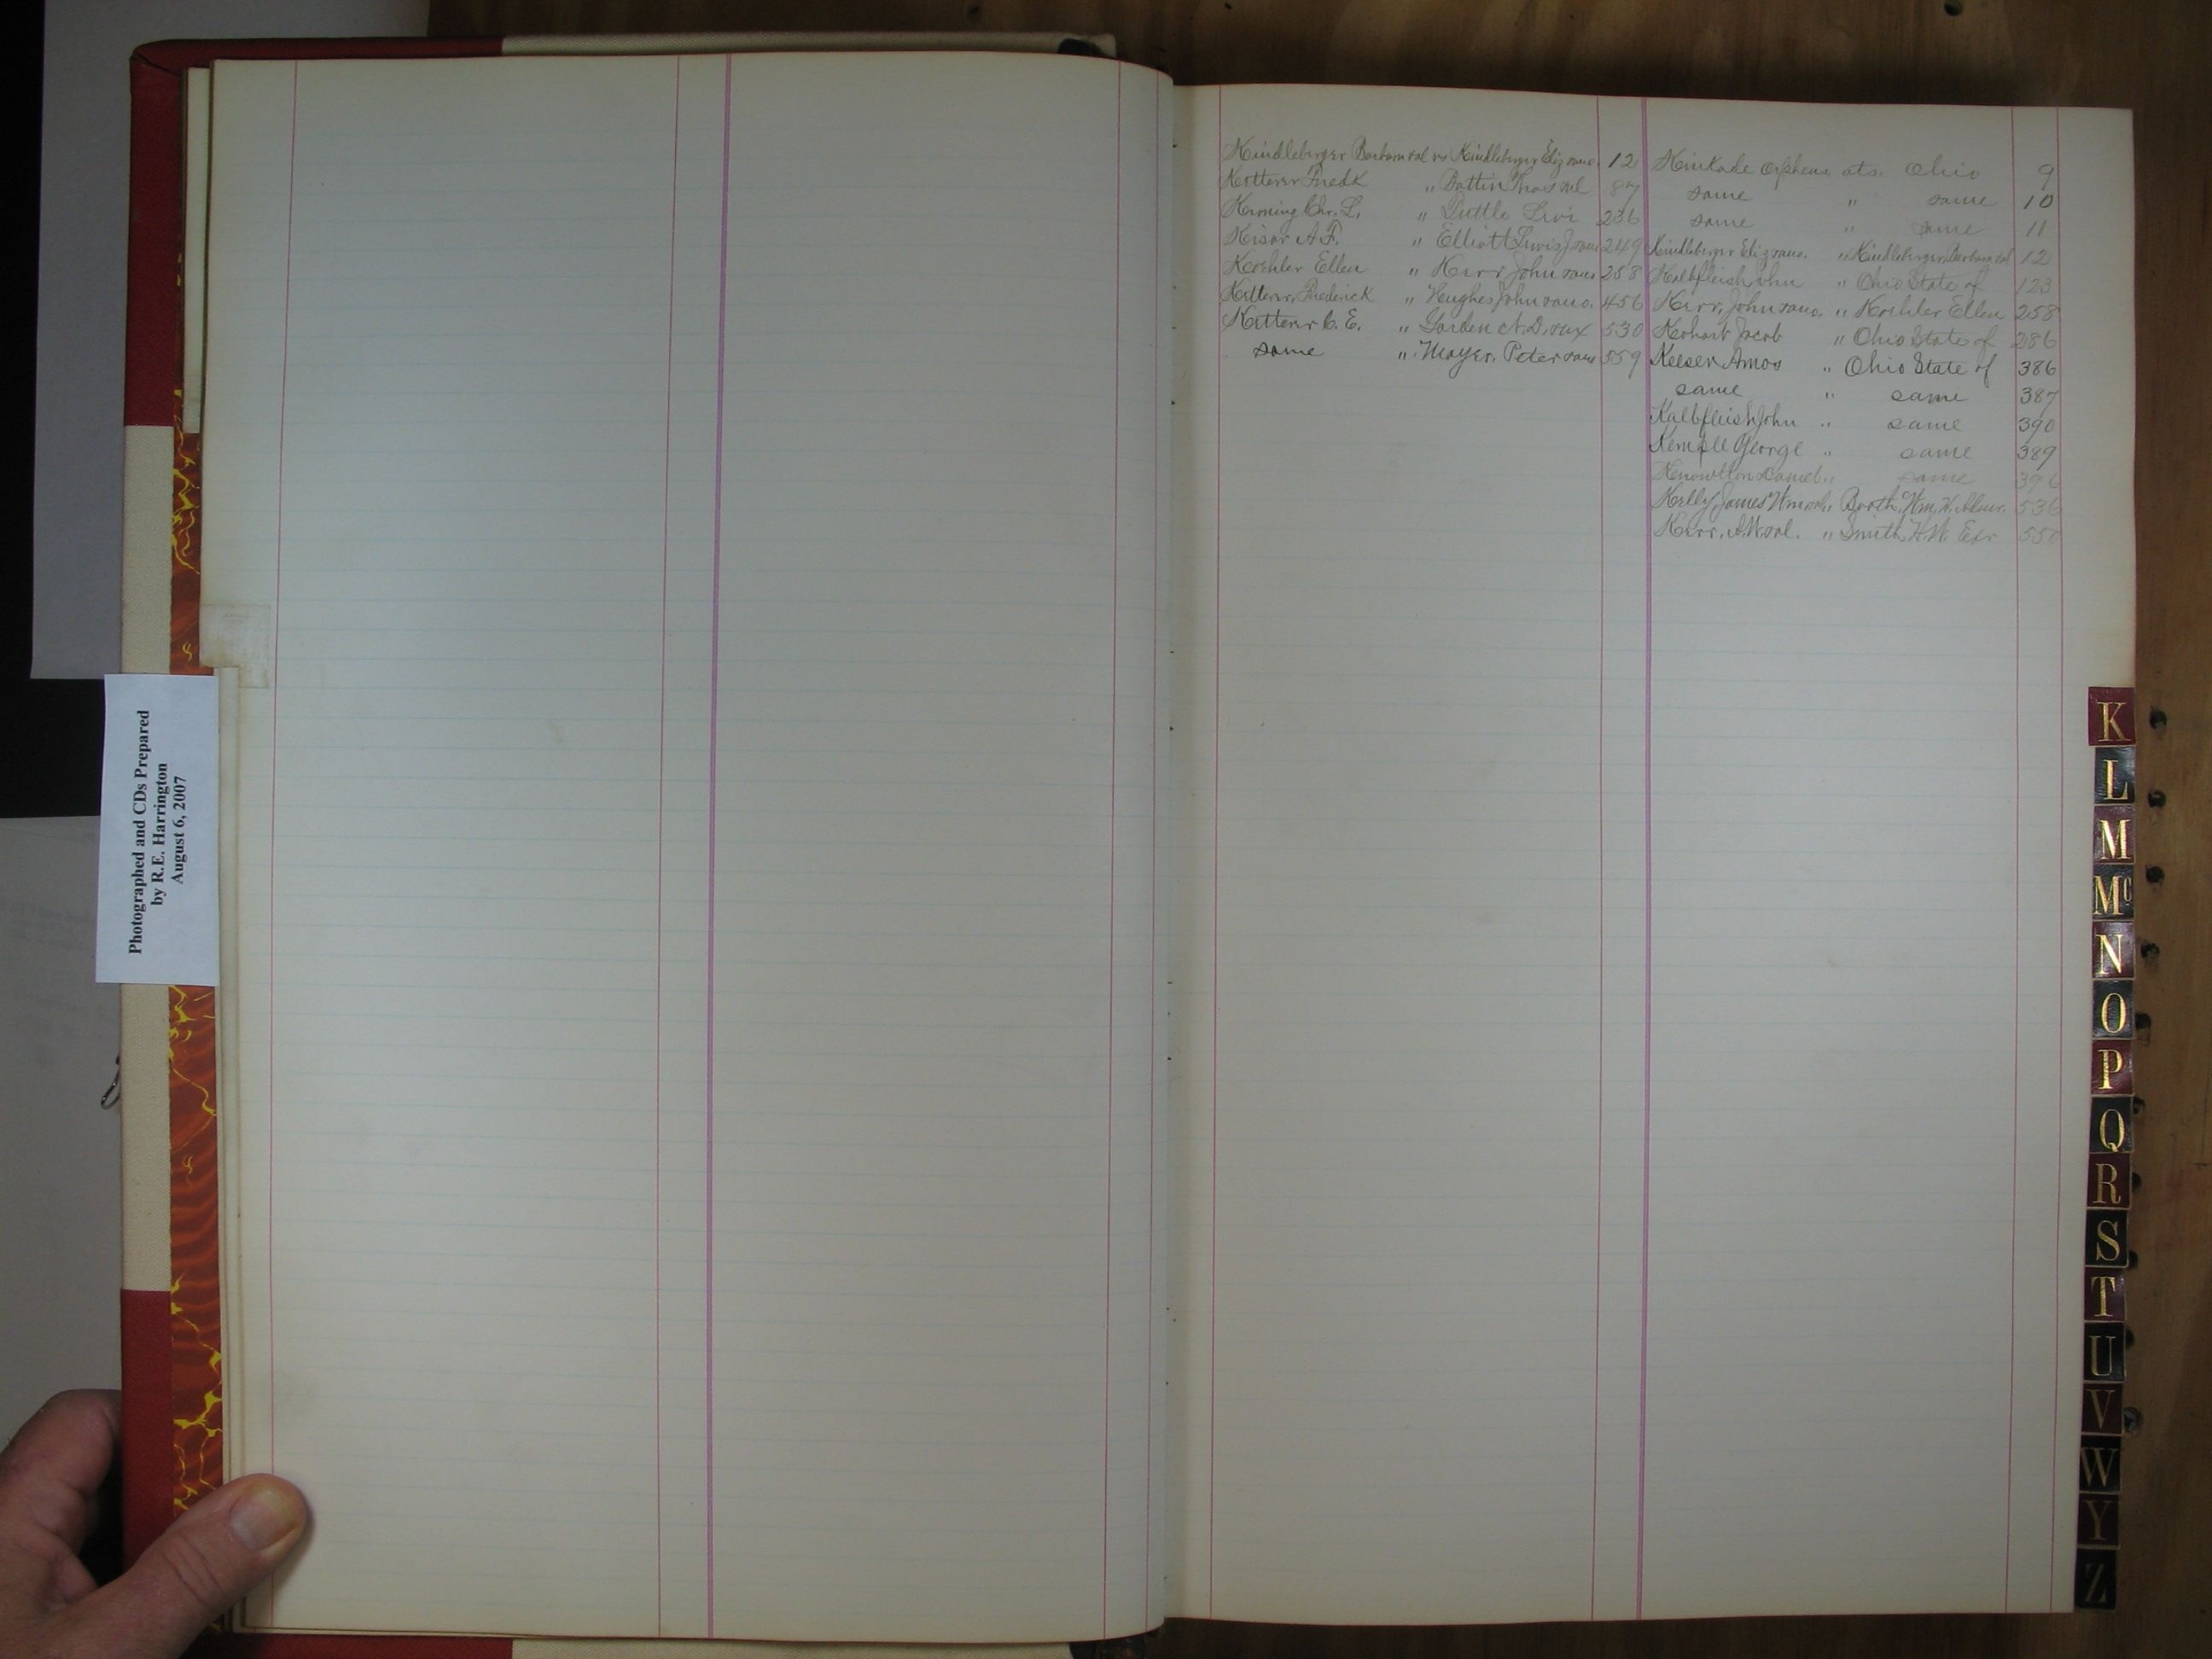 Photographed and CDs Prepared
by R.E. Harrington
August 6, 2007
Kindleberger Barbara et al vs Kindleberger Eliz 12
Ketterer Fredk " Batten Thos 87
Chr. L. " Tuttle Levi 236
Kiser A. F. " Elliott Lewis J 249
Koehler Ellen " Kerr John 258
Ketterer, Frederick " Hughes John 456
Ketterer C. E. " N. D. 530
same " Mayer, Peter 559
Kinkade Orpheus ats. Ohio 9
same " same 10
same " same 11
Kindleberger Eliz " Kindleberger Barbara et al 12
Kalbfleish John " Ohio State of 123
Kerr, John " Koehler Ellen 258
Jacob " Ohio State of 286
Keeser Amos " Ohio State of 386
same " same 387
Kalbfleish John " same 390
Kemple George " same 389
Knowlton Daniel " same
Kelly James Wm " Booth, Wm. H. 536
Kerr, A. W. " Smith H. W. Exr
K
L
M
Mc
N
O
P
Q
R
S
T
U
V
W
Y
Z